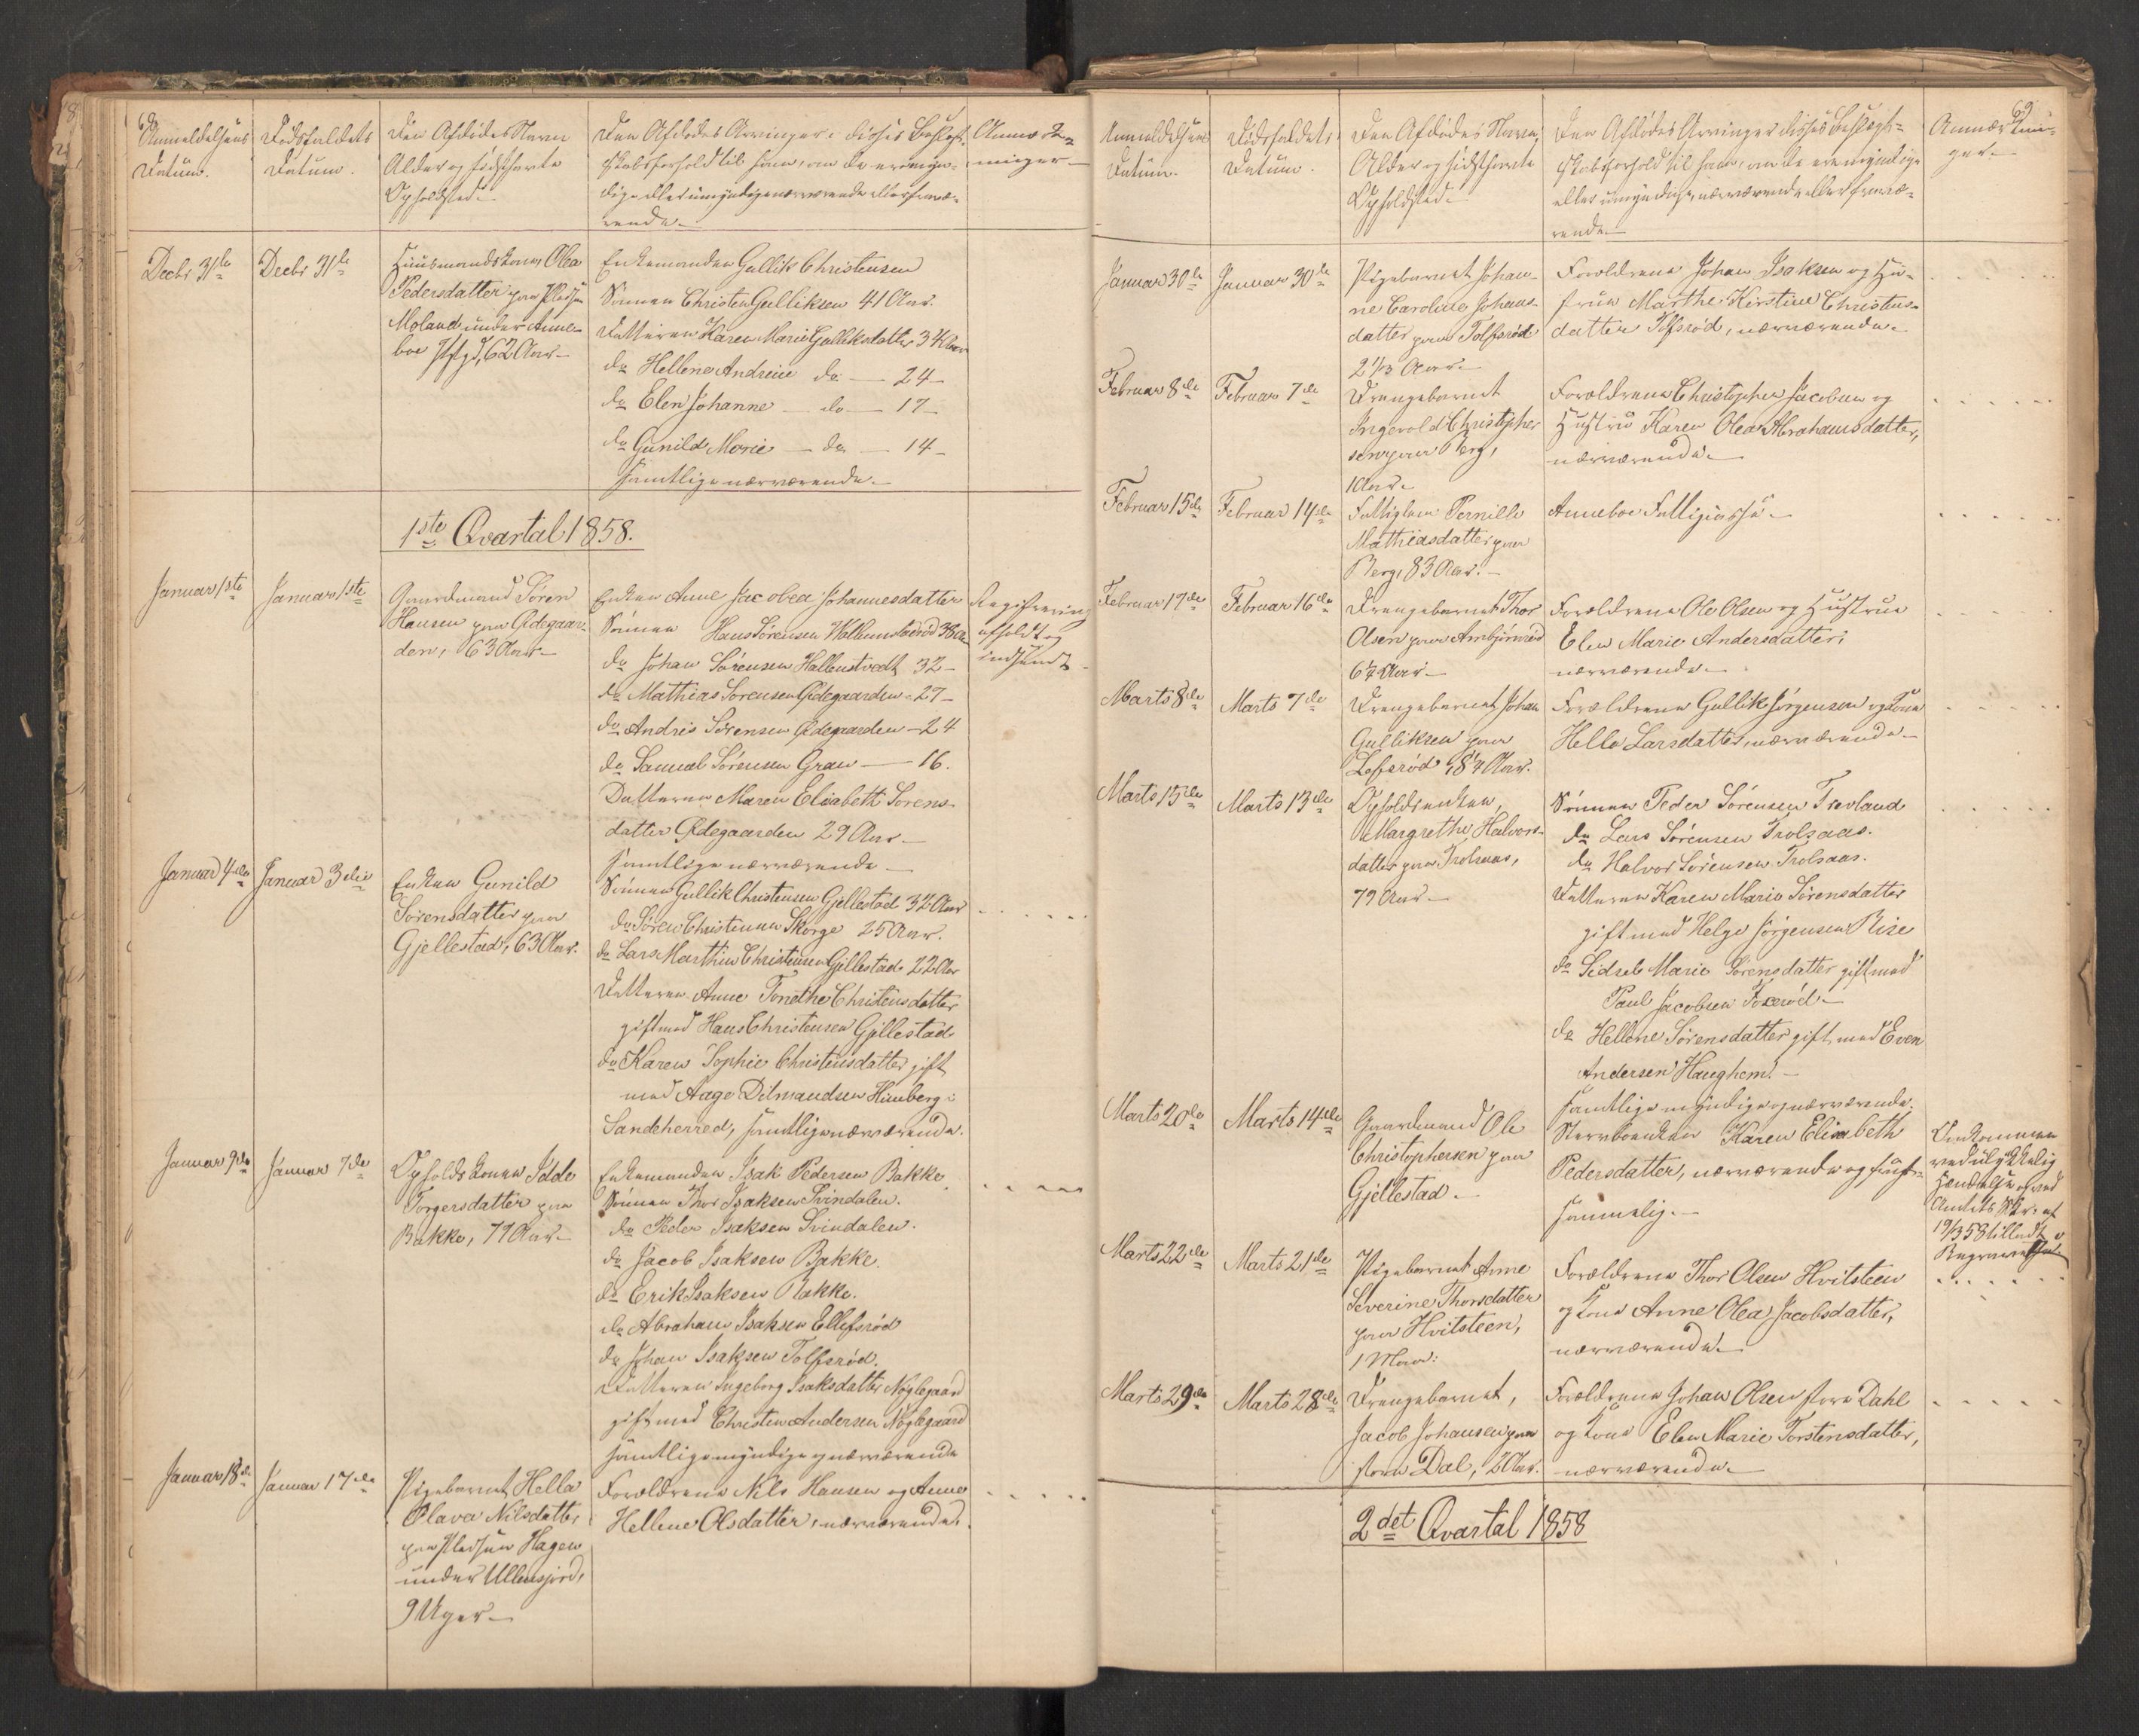 68
Anmeldelsens
Datum.
Dødsfaldets
Datum.
Den Afdødes Navn
Alder og sidsthavte
Opholdsted.
Den Afdødes Arvinger, disses Beslægt-
skabsforhold til ham, om de ere myn-
dige eller umyndige nærværende eller fravæ-
rende.
Anmærk-
ninger
Decbr 31te
Decbr 31te
Huusmandskone Olea
Pedersdatter paa Pladsen
Moland under Anne-
boe Pstgd, 62 Aar
Enkemanden Gullik Christensen
Sønnen Christen Gulliksen 41 Aar.
Datteren Karen Marie Gulliksdatter 34 Aar
do Hellene Andreine do — 24
do Elen Johanne — do — 17
do Gunild Marie — do — 14
samtlige nærværende.
1ste Qvartal 1858.
Januar 1ste
Januar 1ste
Gaardmand Søren
Hansen paa Ødegaar-
den, 63 Aar
Enken Anne Jacobea Johannesdatter
Sønnen Hans Sørensen 38 Aar
do Johan Sørensen Hallenstvedt 32
do Mathias Sørensen Ødegaarden - 27
do Andris Sørensen Ødegaarden - 24
do Samuel Sørensen Gran — 16.
Datteren Maren Elisabeth Sørens-
datter Ødegaarden 29 Aar
samtlige nærværende
Registrering
afholdt og
indsendt
Januar 4de
Januar 3die
Enken Gunild
Sørensdatter paa
Gjellestad, 63 Aar.
Sønnen Gullik Christensen Gjellestad 32 Aar
do Søren Christensen Skorge 25 Aar.
do Lars Marthin Christensen Gjellestad 22 Aar
Datteren Anne Tonethe Christensdatter
gift med Hans Christensen Gjellestad
do Karen Sophie Christensdatter gift
med Aage Dilmandsen Himberg i
Sandeherred, samtlige nærværende.
Januar 9de
Januar 7de
Opholdskonen Idde
Torgersdatter paa
Bakke, 77 Aar
Enkemanden Isak Pedersen Bakke
Sønnen Thor Isaksen Svindalen.
do Peder Isaksen Svindalen.
do Jacob Isaksen Bakke.
do Erik Isaksen Bakke.
do Abraham Isaksen Ellefsrød
do Johan Isaksen Tolfsrød.
Datteren Ingeborg Isaksdatter Nøglegaard
gift med Christen Andersen Nøglegaard
samtlige myndige og nærværende
Januar 18de
Januar 17de
Pigebarnet Hella
Olava Nilsdatter
paa Pladsen Hagen
under Ullensjord,
9 Uger
Forældrene Nils Hansen og Anne
Hellene Olsdatter, nærværende.
69
Anmeldelsens
Datum.
Dødsfaldets
Datum.
Den Afdødes Navn,
Alder og sidsthavte
Opholdsted.
Den Afdødes Arvinger disses Beslægt-
skabsforhold til ham, om de ere myndige
eller umyndige, nærværende eller fravæ-
rende.
Anmærknin-
ger
Januar 30te
Januar 30te
Pigebarnet Johan-
ne Caroline Johans-
datter paa Tolfsrød
2 1/3 Aar.
Forældrene Johan Isaksen og Hu-
strue Marthe Kirstine Christens-
datter Tolfsrød, nærværende.
Februar 8de
Februar 7de
Drengebarnet
Ingevold Christopher-
sen paa Berg,
1 Aar.
Forældrene Christopher Jacobsen og
Hustru Karen Olea Abrahamsdatter,
nærværende.
Februar 15de
Februar 14de
Fattiglem Pernille
Mathiasdatter paa
Berg, 83 Aar.
Anneboe Fattigkasse.
Februar 17de
Februar 16de
Drengebarnet Thor
Olsen paa
6 Aar
Forældrene Ole Olsen og Hustrue
Elen Marie Andersdatter,
nærværende.
Marts 8de
Marts 7de
Drengebarnet Johan
Gulliksen paa
Lefsrød, Aar.
Forældrene Gullik Jørgensen og Kone
Helle Larsdatter, nærværende
Marts 15de
Marts 13de
Opholdsenken,
Margrethe Halvors-
datter paa Trolsaas,
79 Aar
Sønnen Peder Sørensen Trevland
do Lars Sørensen Trolsaas.
do Halvor Sørensen Trolsaas.
Datteren Karen Marie Sørensdatter
gift med Helge Jørgensen Rise
do Sidsel Marie Sørensdatter gift med
Paul Jacobsen Foxerød
do Hellene Sørensdatter gift med Even
Andersen Haughem.
samtlige myndige og nærværende.
Marts 20de
Marts 14de
Gaardmand Ole
Christophersen paa
Gjellestad.
Stervboenken Karen Elisabeth
Pedersdatter, nærværende og frugt-
sommelig.
Omkommen
ved ulykkelig
Hændelse og ved
Amtets Skr. af
19/3 58 tilladt
Begravelse
Marts 22de
Marts 21de
Pigebarnet Anne
Severine Thorsdatter
paa Hvitsteen,
1 Maan:
Forældrene Thor Olsen Hvitsteen
og Kone Anne Olea Jacobsdatter,
nærværende.
Marts 29de
Marts 28de
Drengebarnet,
Jacob Johansen paa
store Dal, 2 Aar.
Forældrene Johan Olsen store Dahl
og Kone Elen Marie Torstensdatter,
nærværende.
2det Qvartal 1858